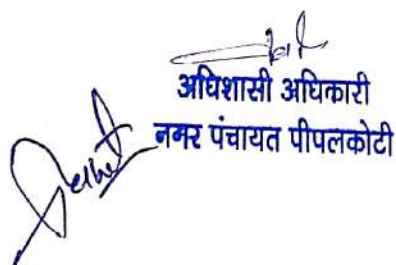 अधिशासी अधिकारी
नगर पंचायत पीपलकोटी